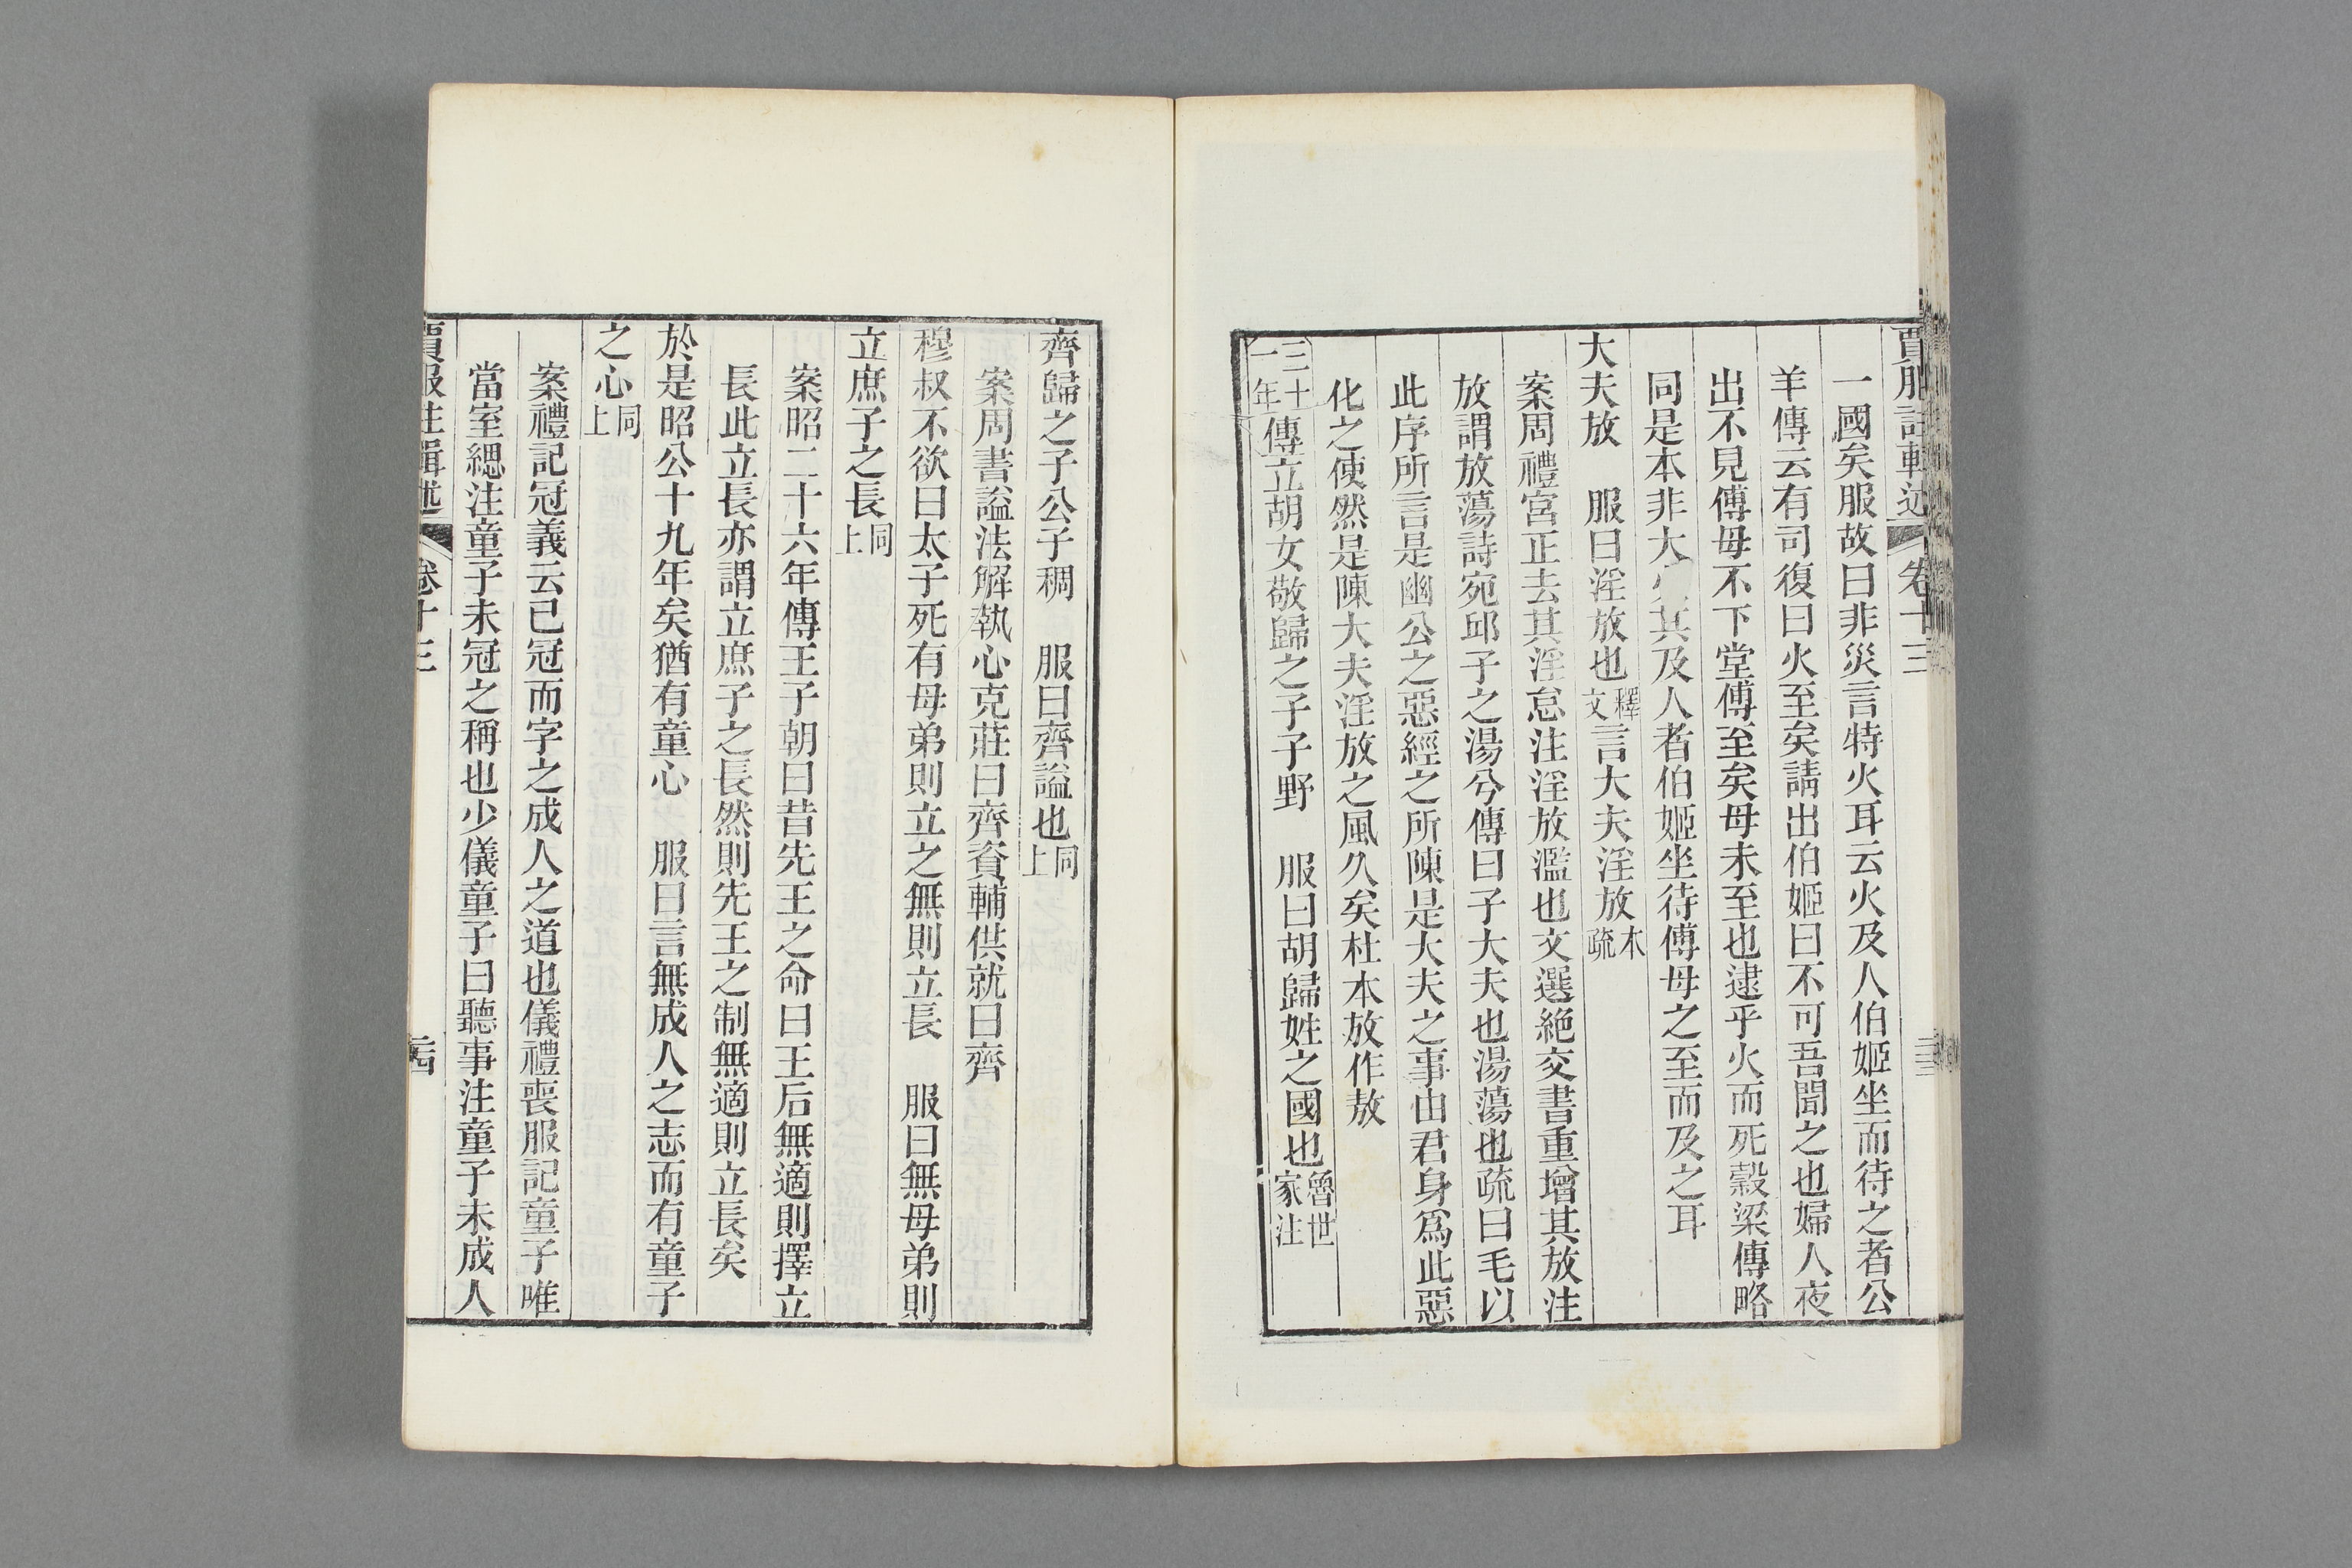 賈服註輯述 卷十三
一國矣服故曰非災言特火耳云火及人伯姬坐而待之者公
羊傳云有司復曰火至矣請出伯姬曰不可吾聞之也婦人夜
出不見傅毋不下堂傅至矣母未至也逮乎火而死穀梁傳略
同是本非大其及人者伯姬坐待傅母之至而及之耳
大夫放 服曰淫放也釋文言大夫淫放本疏
案周禮宮正去其淫怠注淫放濫也文選絕交書重增其放注
放謂放蕩詩宛邱子之湯兮傳曰子大夫也湯蕩也疏曰毛以
此序所言是幽公之惡經之所陳是大夫之事由君身爲此惡
化之使然是陳大夫淫放之風久矣杜本放作敖
三十一年傳立胡女敬歸之子子野 服曰胡歸姓之國也魯世家注
齊歸之子公子稠 服曰齊謚也同上
案周書謚法解執心克莊曰齊資輔供就曰齊
穆叔不欲曰太子死有母弟則立之無則立長 服曰無母弟則
立庶子之長同上
案昭二十六年傳王子朝曰昔先王之命曰王后無適則擇立
長此立長亦謂立庶子之長然則先王之制無適則立長矣
於是昭公十九年矣猶有童心 服曰言無成人之志而有童子
之心同上
案禮記冠義云已冠而字之成人之道也儀禮喪服記童子唯
當室緦注童子未冠之稱也少儀童子曰聽事注童子未成人
賈服注輯述 卷十三 二四